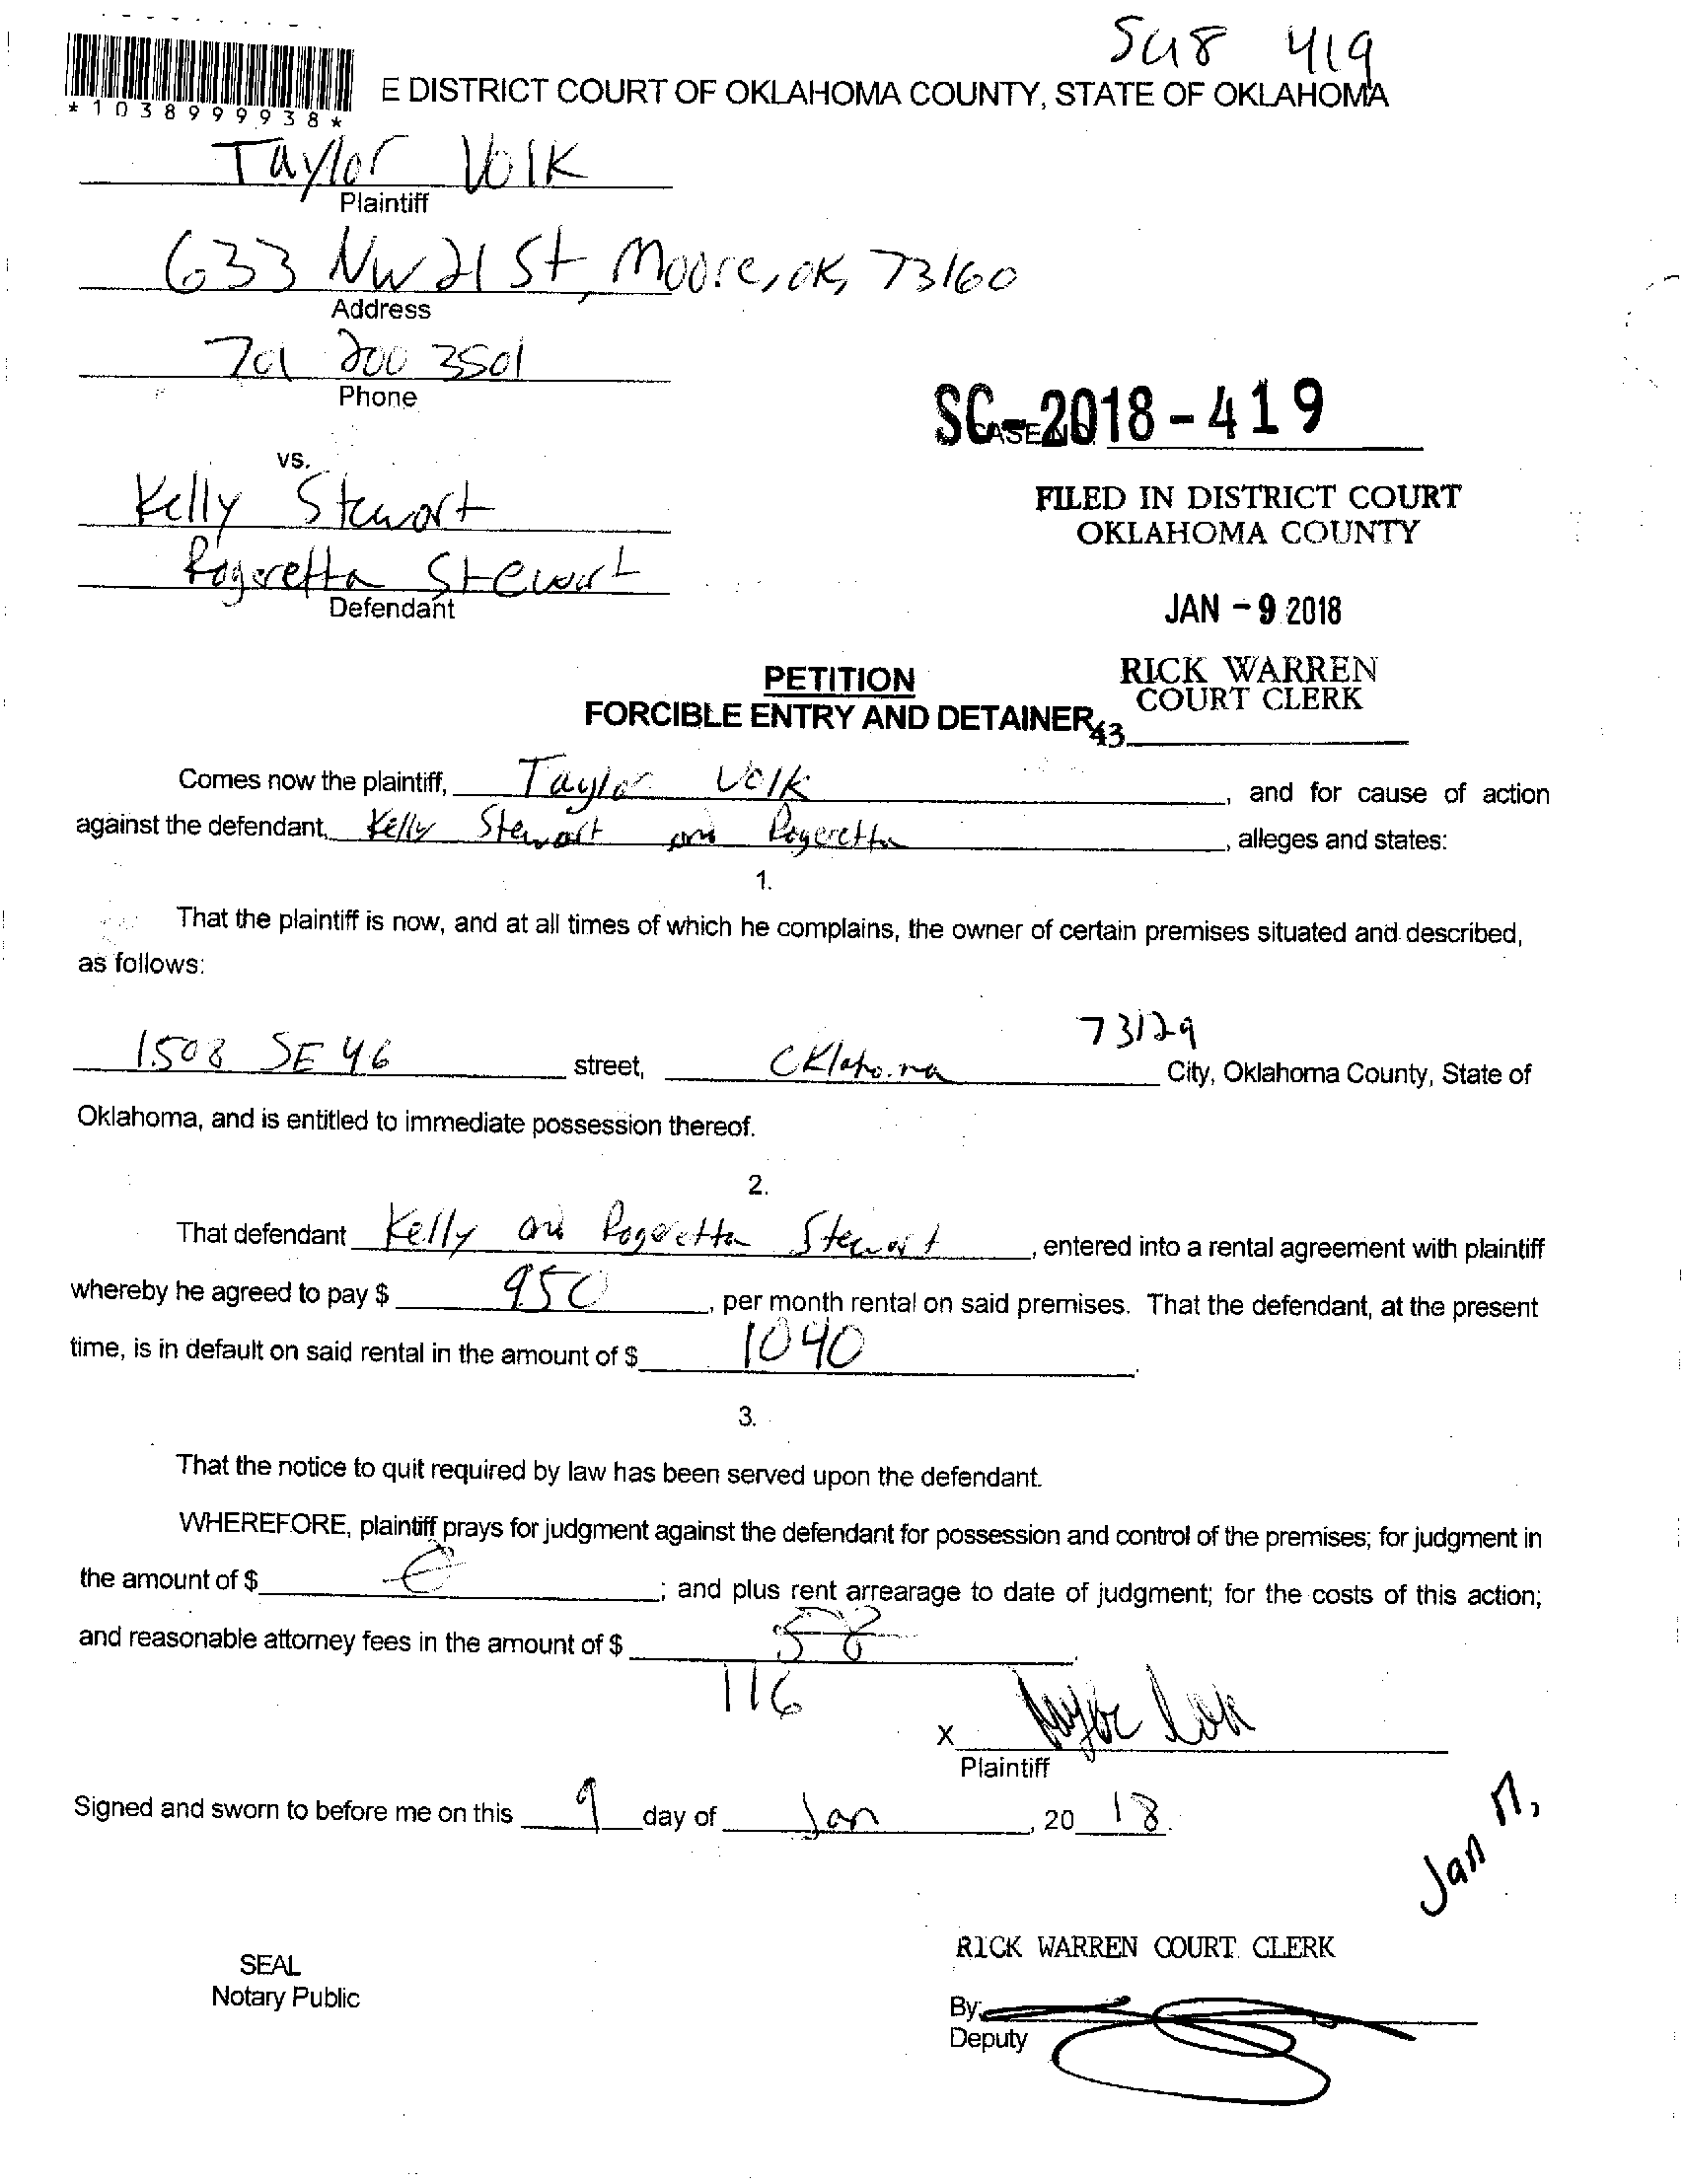 SC18 419
E DISTRICT COURT OF OKLAHOMA COUNTY, STATE OF OKLAHOMA
*1038999938*
Taylor Volk
Plaintiff
633 NW 21 St, Moore, OK, 73160
Address
701 200 3501
Phone
SC-2018-419
CASE NO.
vs.
Kelly Stewart
FILED IN DISTRICT COURT
OKLAHOMA COUNTY
Rogeretta Stewart
Defendant
JAN -9 2018
PETITION
RICK WARREN
COURT CLERK
FORCIBLE ENTRY AND DETAINER
43
Comes now the plaintiff, Taylor Volk, and for cause of action
against the defendant, Kelly Stewart and Rogeretta, alleges and states:
1.
That the plaintiff is now, and at all times of which he complains, the owner of certain premises situated and described,
as follows:
73129
1508 SE 46 street, Oklahoma City, Oklahoma County, State of
Oklahoma, and is entitled to immediate possession thereof.
2.
That defendant Kelly and Rogeretta Stewart, entered into a rental agreement with plaintiff
whereby he agreed to pay $ 950, per month rental on said premises. That the defendant, at the present
time, is in default on said rental in the amount of $ 1040.
3.
That the notice to quit required by law has been served upon the defendant.
WHEREFORE, plaintiff prays for judgment against the defendant for possession and control of the premises; for judgment in
the amount of $ ; and plus rent arrearage to date of judgment; for the costs of this action;
and reasonable attorney fees in the amount of $ 58.
116
X Taylor Volk
Plaintiff
Signed and sworn to before me on this 9 day of Jan, 20 18.
Jan
RICK WARREN COURT CLERK
SEAL
Notary Public
By:
Deputy